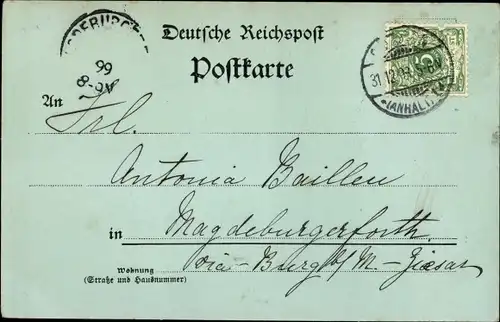 Deutsche Reichspost
Postkarte
99
8-9V
31.12.98
(ANHALT)
5
An Frl.
Antonia Baillen
in Magdeburgerforth
via-Burg b/M-Ziesar
Wohnung
(Straße und Hausnummer)